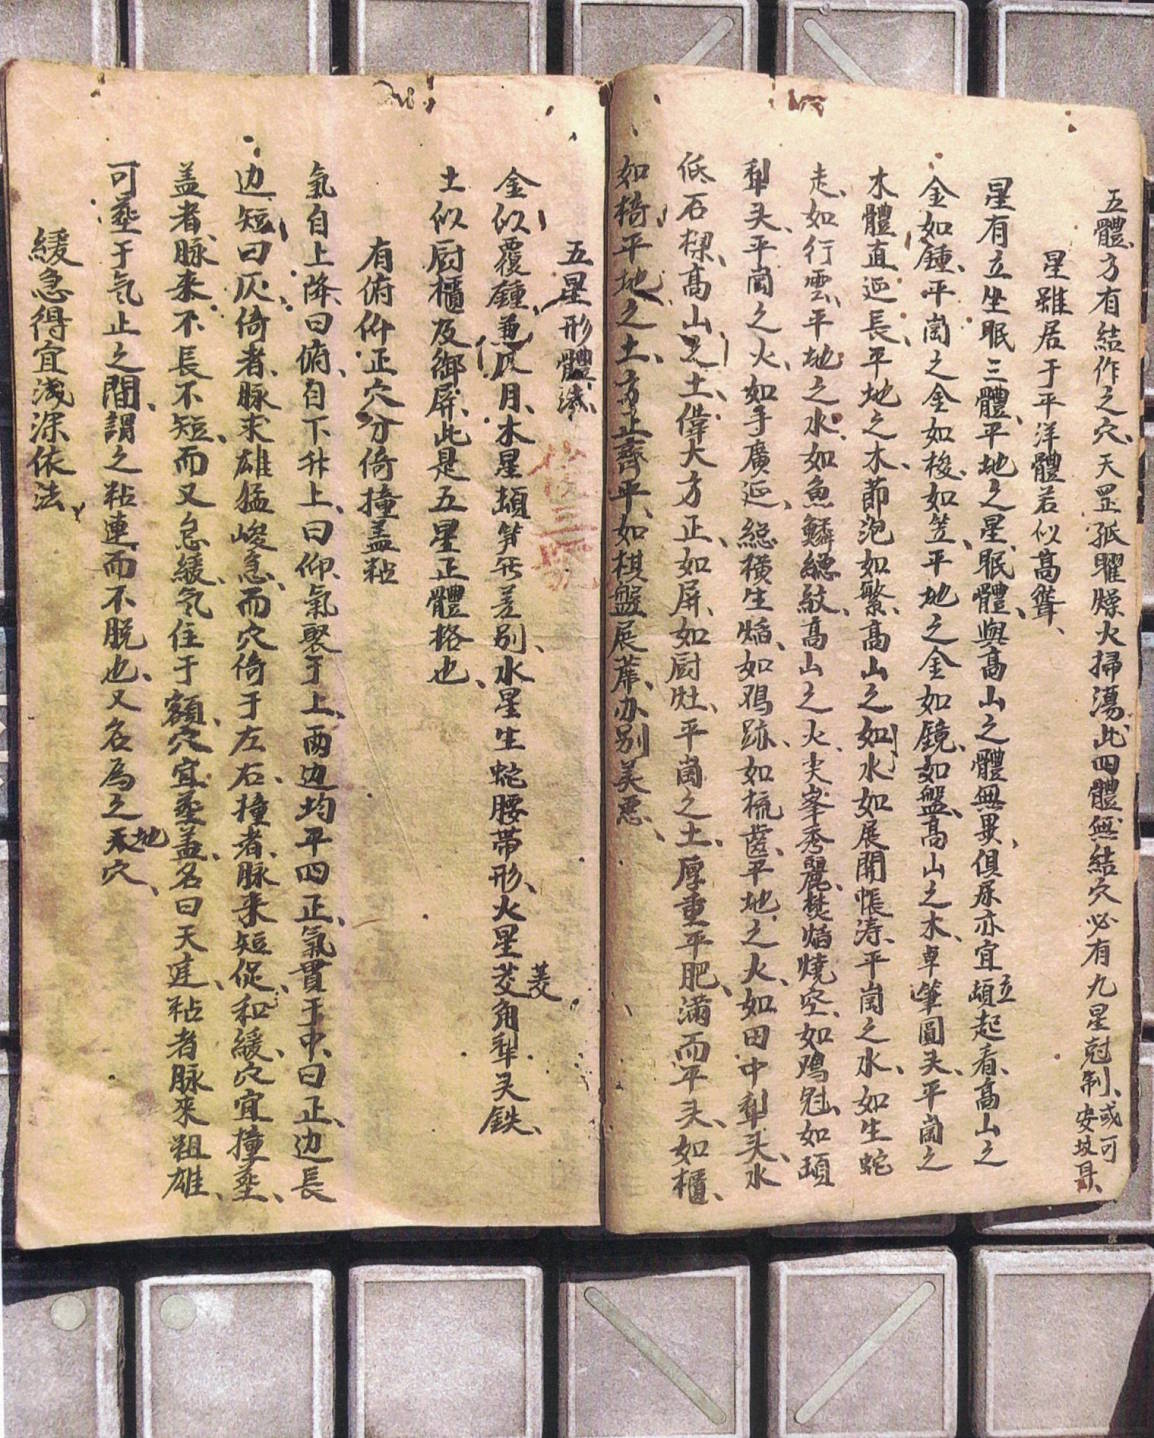 五體方有結作之穴天罡孤曜燥火掃蕩此四體無結穴必有九星尅制或可安坟
星雖居于平洋體若似高聳
星有立坐眠三體平地之星眠體與高山之體無異俱屎亦宜立起看高山之
金如鍾平崗之金如梭如笠平地之金如鏡如盤高山之木卓筆圓头平崗之
木體直逕長平地之木節泡如繁高山之如水如展開帳涛平崗之水如生蛇
走如行雲平地之水如魚鱗縐紋高山之火尖峯秀麗焚焰燒空如鳮冠如
犁头平崗之火如手廣逕縂横生焰如鴉跡如梳齒平地之火如田中犁头水
低石樑高山之土偉大方正如屏如厨灶平崗之土厚重平肥滿而平头如櫃
如椅平地之土方正齊平如棋盤展蓆办别美惡
五星形體法
金似覆鍾兼仄月木星頓笋無差别水星生蛇腰帶形火星菱角犁头鉄
土似厨櫃及御屏此是五星正體格也
有俯仰正穴分倚撞盖粘
氣自上降曰俯自下升上曰仰氣聚于上两边均平四正氣貫于中曰正边長
边短曰仄倚者脉来雄猛峻急而穴倚于左右撞者脉来短促和緩穴宜撞塟
盖者脉来不長不短而又怠緩気住于額穴宜塟盖名曰天庭粘者脉来粗雄
可塟于気止之間謂之粘連而不脱也又名為之地穴
緩急得宜浅深依法